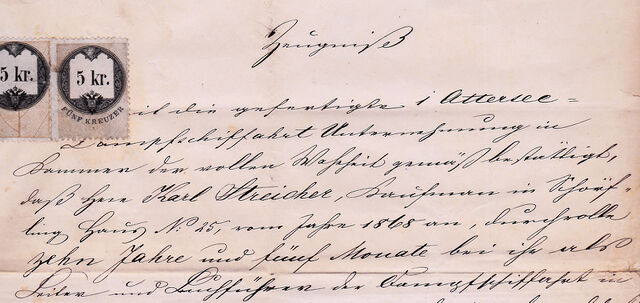 Zeugniß
5 kr.
5 kr.
FÜNF KREUZER
it die gefertigte 1 Attersee=
Dampfschiffahrt Unternehmung in
Kammer der vollen Wahrheit gemäß bestättigt,
daß Herr Karl Streicher, Kaufman in Schörf=
ling Haus No. 25, vom Jahre 1868 an, durch volle
zehn Jahre und fünf Monate bei ihr als
Leiter und Buchführer der Dampfschiffahrt in